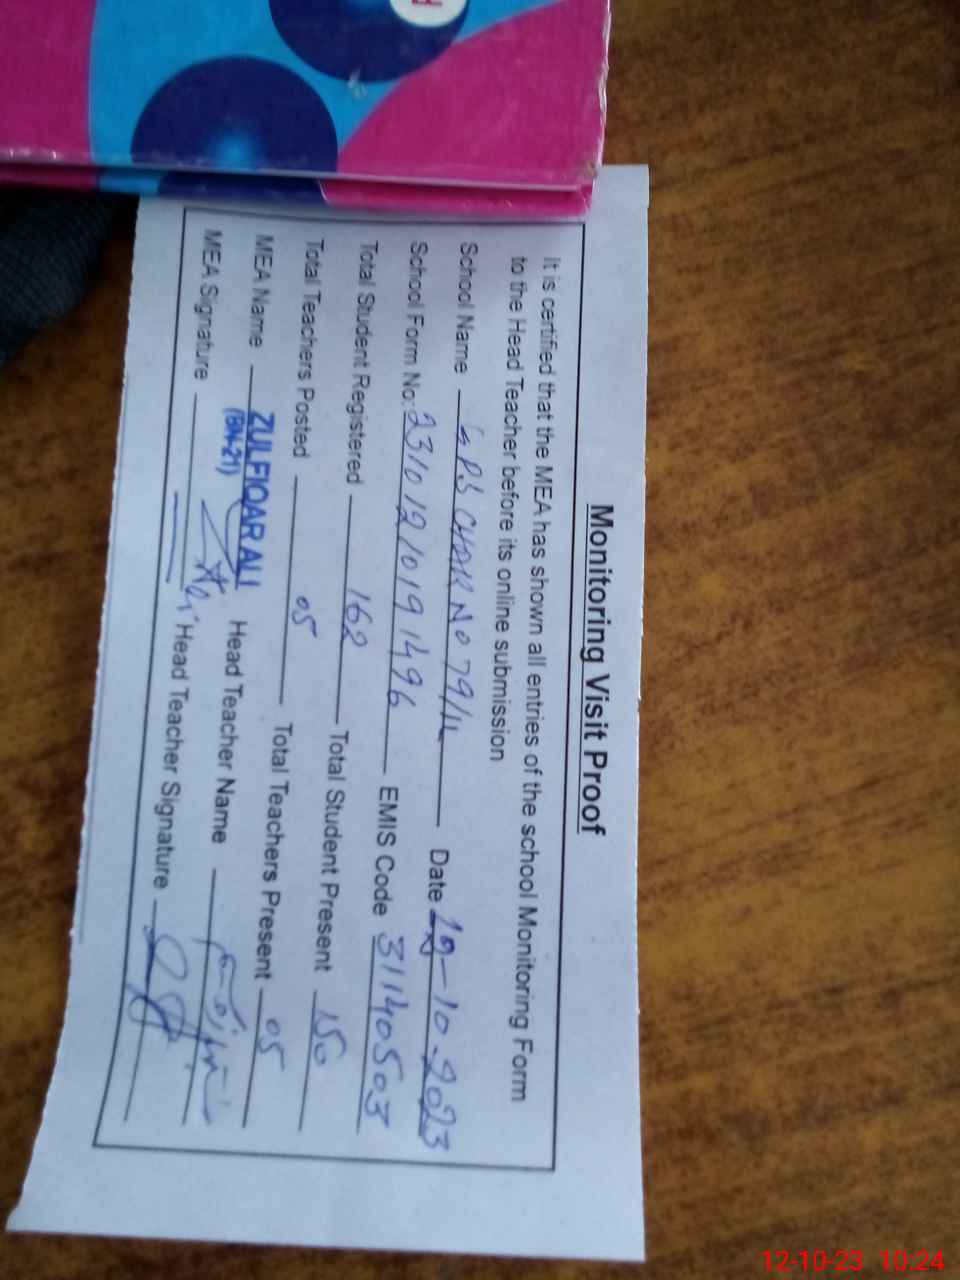 Monitoring Visit Proof
It is certified that the MEA has shown all entries of the school Monitoring Form
to the Head Teacher before its online submission
School Name GPS CHAK NO 79/ Date 12-10-2023
School Form No: 23101210191496 EMIS Code 31140503
Total Student Registered 162 Total Student Present 150
Total Teachers Posted 05 Total Teachers Present 05
MEA Name ZULFIQAR ALI Head Teacher Name
(BN-21)
MEA Signature Head Teacher Signature
12-10-23 10:24